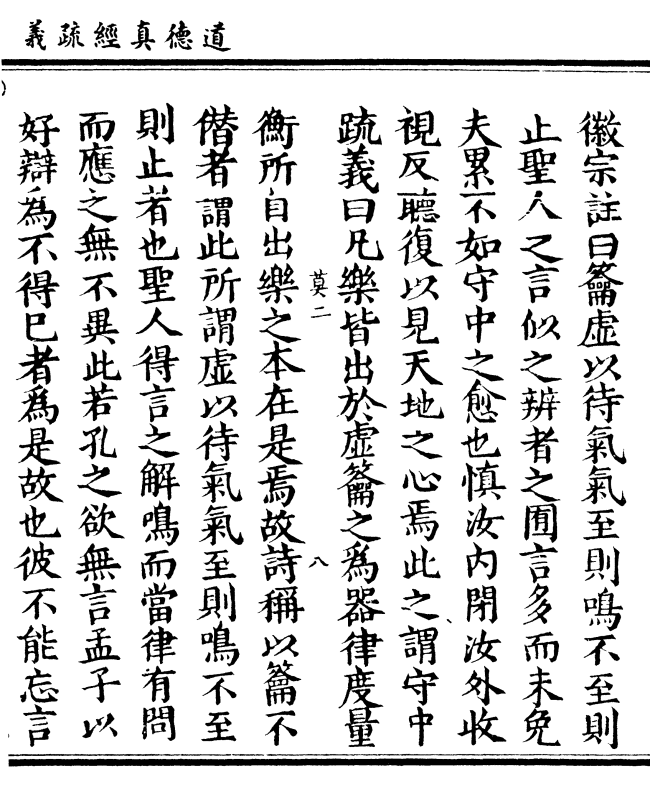 道德真經疏義
徽宗註曰籥虛以待氣氣至則鳴不至則
止聖人之言似之辨者之囿言多而未免
夫累不如守中之愈也慎汝內閉汝外收
視反聽復以見天地之心焉此之謂守中
疏義曰凡樂皆出於虛籥之爲器律度量
莫二
八
衡所自出樂之本在是焉故詩稱以籥不
僭者謂此所謂虛以待氣氣至則鳴不至
則止若也聖人得言之解鳴而當律有問
而應之無不異此若孔之欲無言孟子以
好辯爲不得已者爲是故也彼不能忘言